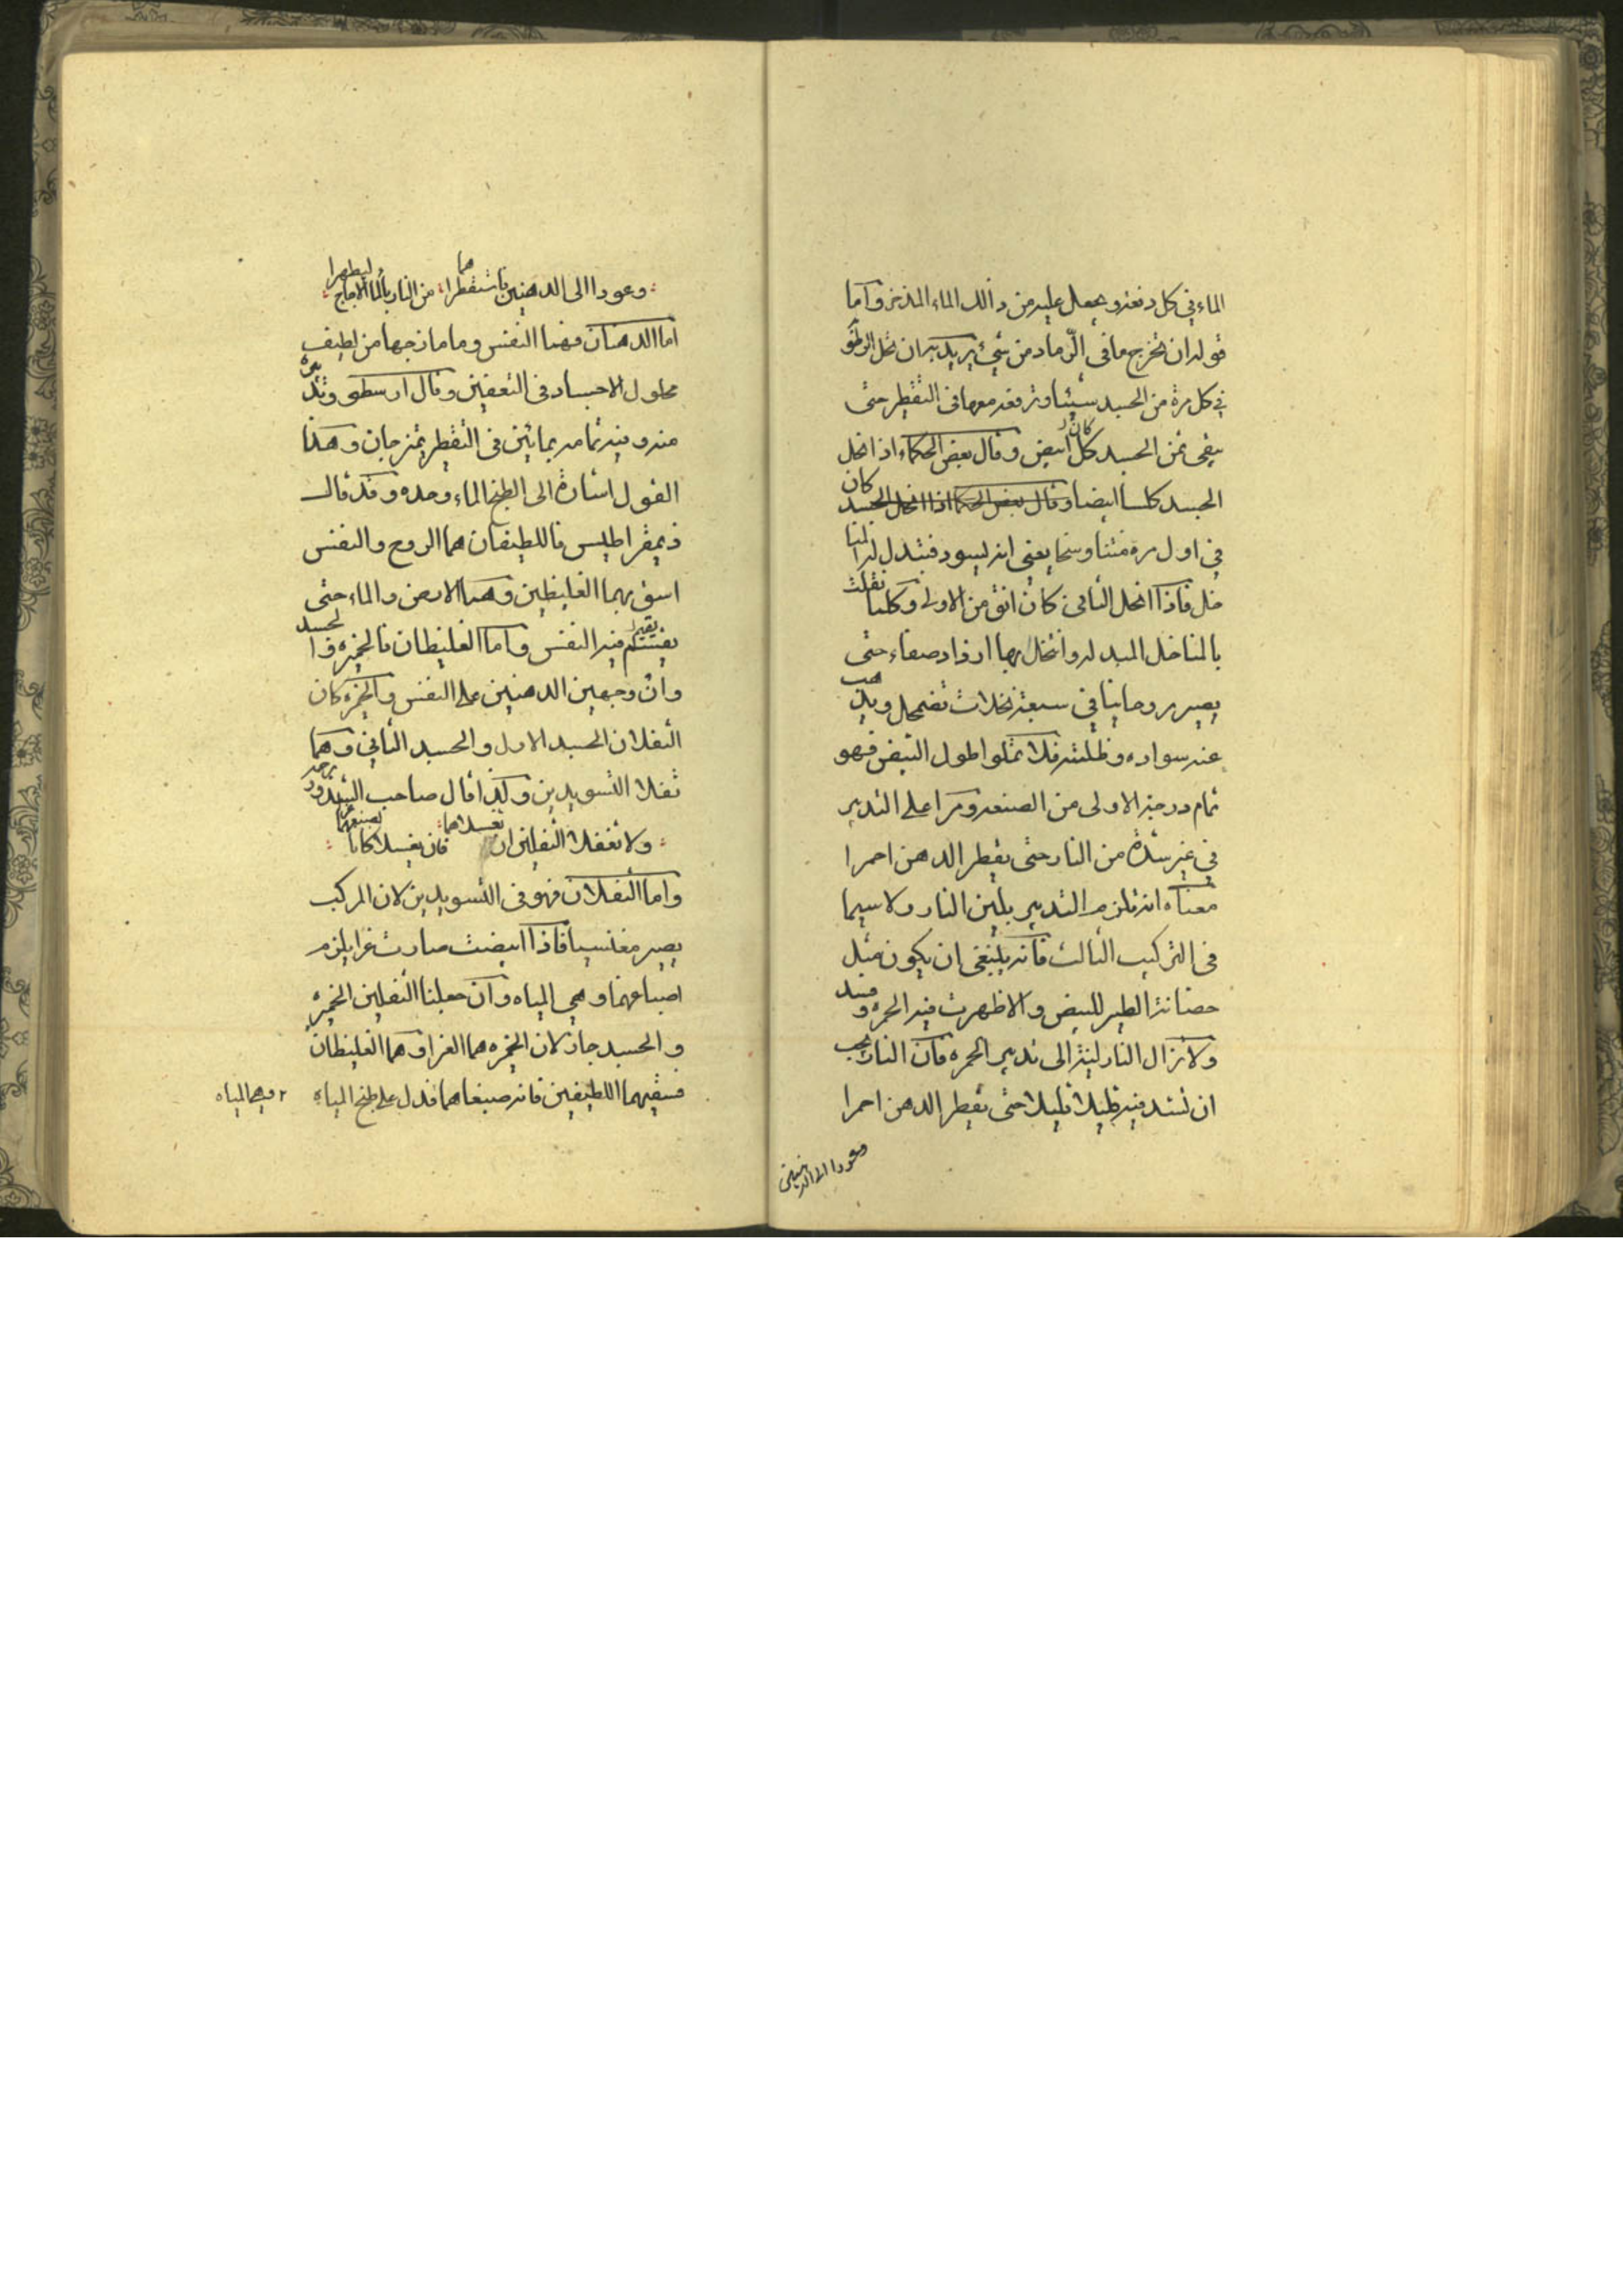 الماء في كل دفعه ويجعل عليه من ذالك الماء المذبر واما
قوله ان تخرج ما في الرماد من شئ يريد به ان تحل الرطوبة
في كل مرة من الجسد شيئا وترفعه معها في التقطير حتى
يبقى من الجسد كل ابيض وقال بعض الحكماء اذا انحل
الجسد كلسا ابيضا وقال بعض الحكما اذا انحل الجسد كان
في اول مرة منتنا وسخا يعنى انه ليسود فتبدل له
نخل فاذا انخل الثانى كان انقى من الاولى وكلما نقلت
بالمناخل المبدله وانتخل بها ازداد صفاء حتى
يصير روحانيا في سبعة نخلات تضمحل ويذهب
عنه سواده وظلمته فلا تملوا طول التبيض فهو
تمام درجة الاولى من الصنعه ومرا على التدبير
في غير شدة من النار حتى يقطر الدهن احمرا
معناه انه تلزم التدبير بلين النار ولا سيما
فى التركيب الثالث فانه ينبغى ان يكون مثل
حضانة الطير للبيض والا ظهرت فيه الحمره وفسد
ولا تزال النار لينة الى تدبير الحمره فان النار يجب
ان تشتد فيه قليلا قليلا حتى يقطر الدهن احمرا
وعودا الى الدهنين
وعودا الى الدهنين فاستقطراهما من النار بالماء الاجاج ليطهرا
اما الدهنان فهما النفس وما مازجها من لطيف
محلول الاجساد فى التعفين وقال ارسطو وتد
منه وفيه تمامه بمائين فى التقطير يمتزجان وهذا
القول اشارة الى الطبخ الماء وحده وقد قال
ذيمقراطيس فاللطيفان هما الروح والنفس
اسق بهما الغليظين وهما الارض والماء حتى
فيه النفس واما الغليظان فالخمره والجسد
وان وجهين الدهنين على النفس والخمره كان
الثفلان الجسد الاول والجسد الثانى وهما
ثفلا التسويدين وكذا قال صاحب الشذور
ولا تغفلا الثفلين ان تغسلاهما فان يغسلا كانا
واما الثفلان فهو فى التسويدين لان المركب
يصير مغنسيا فاذا ابيضت صارت غرا يلزم
اصباغهما وهي المياه وان جعلنا الثفلين الخمره
والجسد جاز لان الخمره هما الغرا وهما الغليظان
فسقيهما اللطيفين فانه صبغاهما فدل على طبخ المياه
وهما المياه